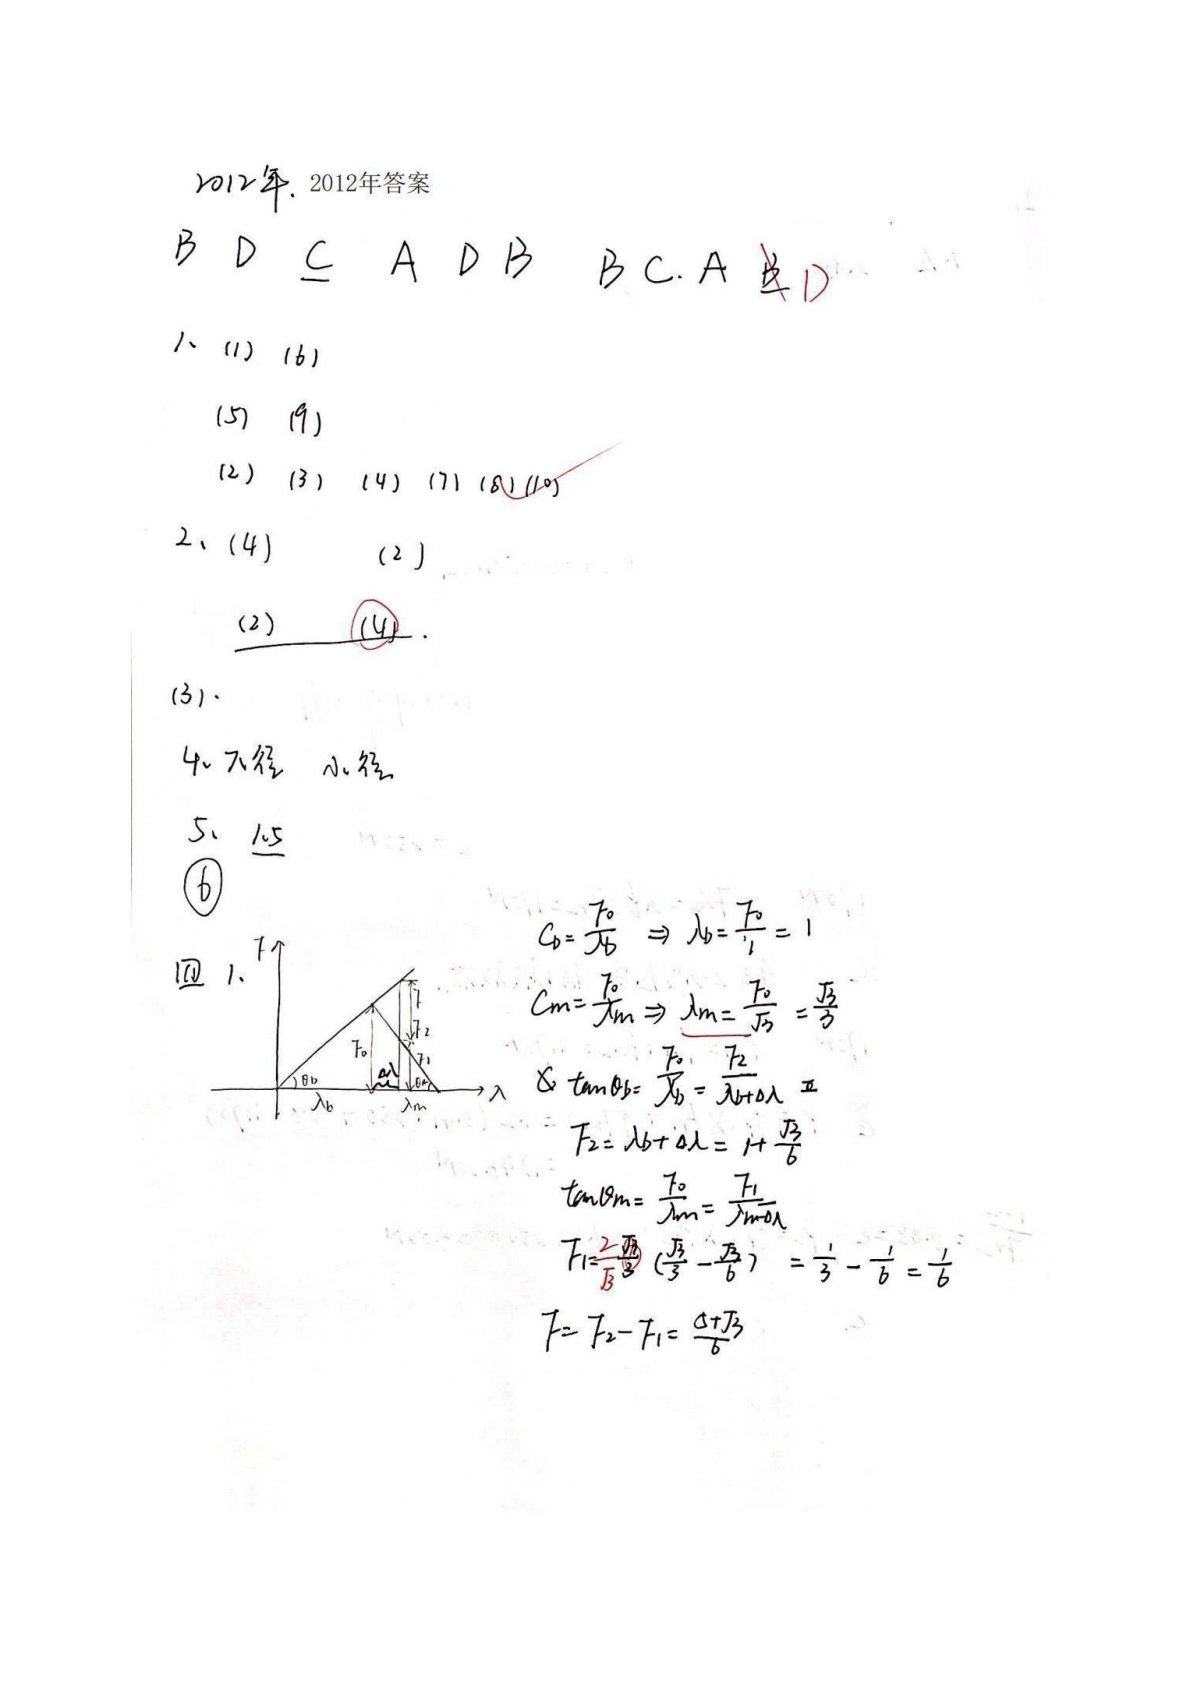 2012年. 2012年答案
B D C A D B B C. A B D
1、 (1) (6)
(5) (9)
(2) (3) (4) (7) (8) (10)
2、 (4) (2)
(2) (4) .
(3).
4、大径 小径
5、 1.5
6
四 1、
F
F
F2
F0 F1
Δλ
θb θm λ
λb λm
Cb = F0/λb ⇒ λb = F0/1 = 1
Cm = F0/λm ⇒ λm = F0/√3 = √3/3
& tanθb = F0/λb = F2/(λb+Δλ) =
F2 = λb+Δλ = 1+ √3/6
tanθm = F0/λm = F1/(λm-Δλ)
F1 = (√3/3 - √3/6) = 1/3 - 1/6 = 1/6
F = F2 - F1 = (5+√3)/6